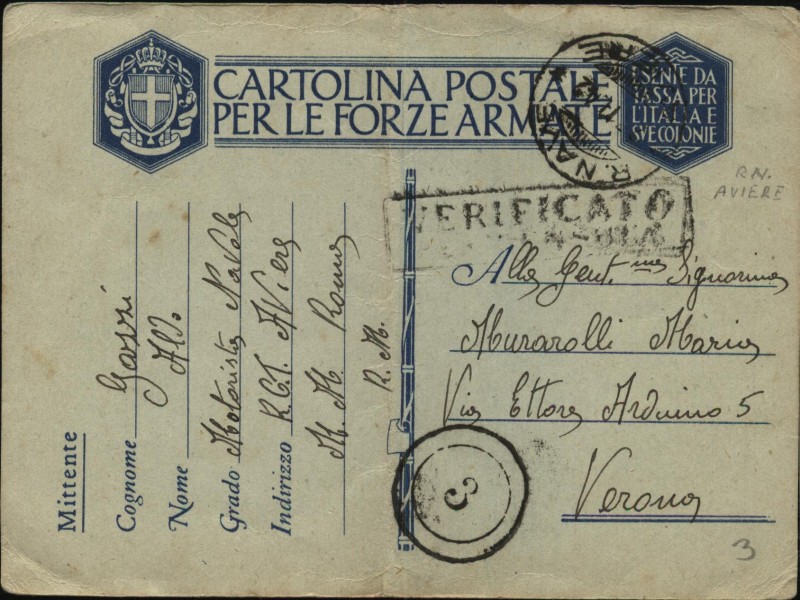 CARTOLINA POSTALE
PER LE FORZE ARMATE
ESENTE DA
TASSA PER
L'ITALIA E
SVE COLONIE
R. NAVE
R.N.
AVIERE
VERIFICATO
Mittente
Cognome Gozzi
Nome Aldo
Grado Motorista Navale
Indirizzo R.C.T. Aviere
M. M. Roma
R. M.
Alla Gent.ma Signorina
Murarolli Maria
Via Ettore Arduino 5
Verona
3
3